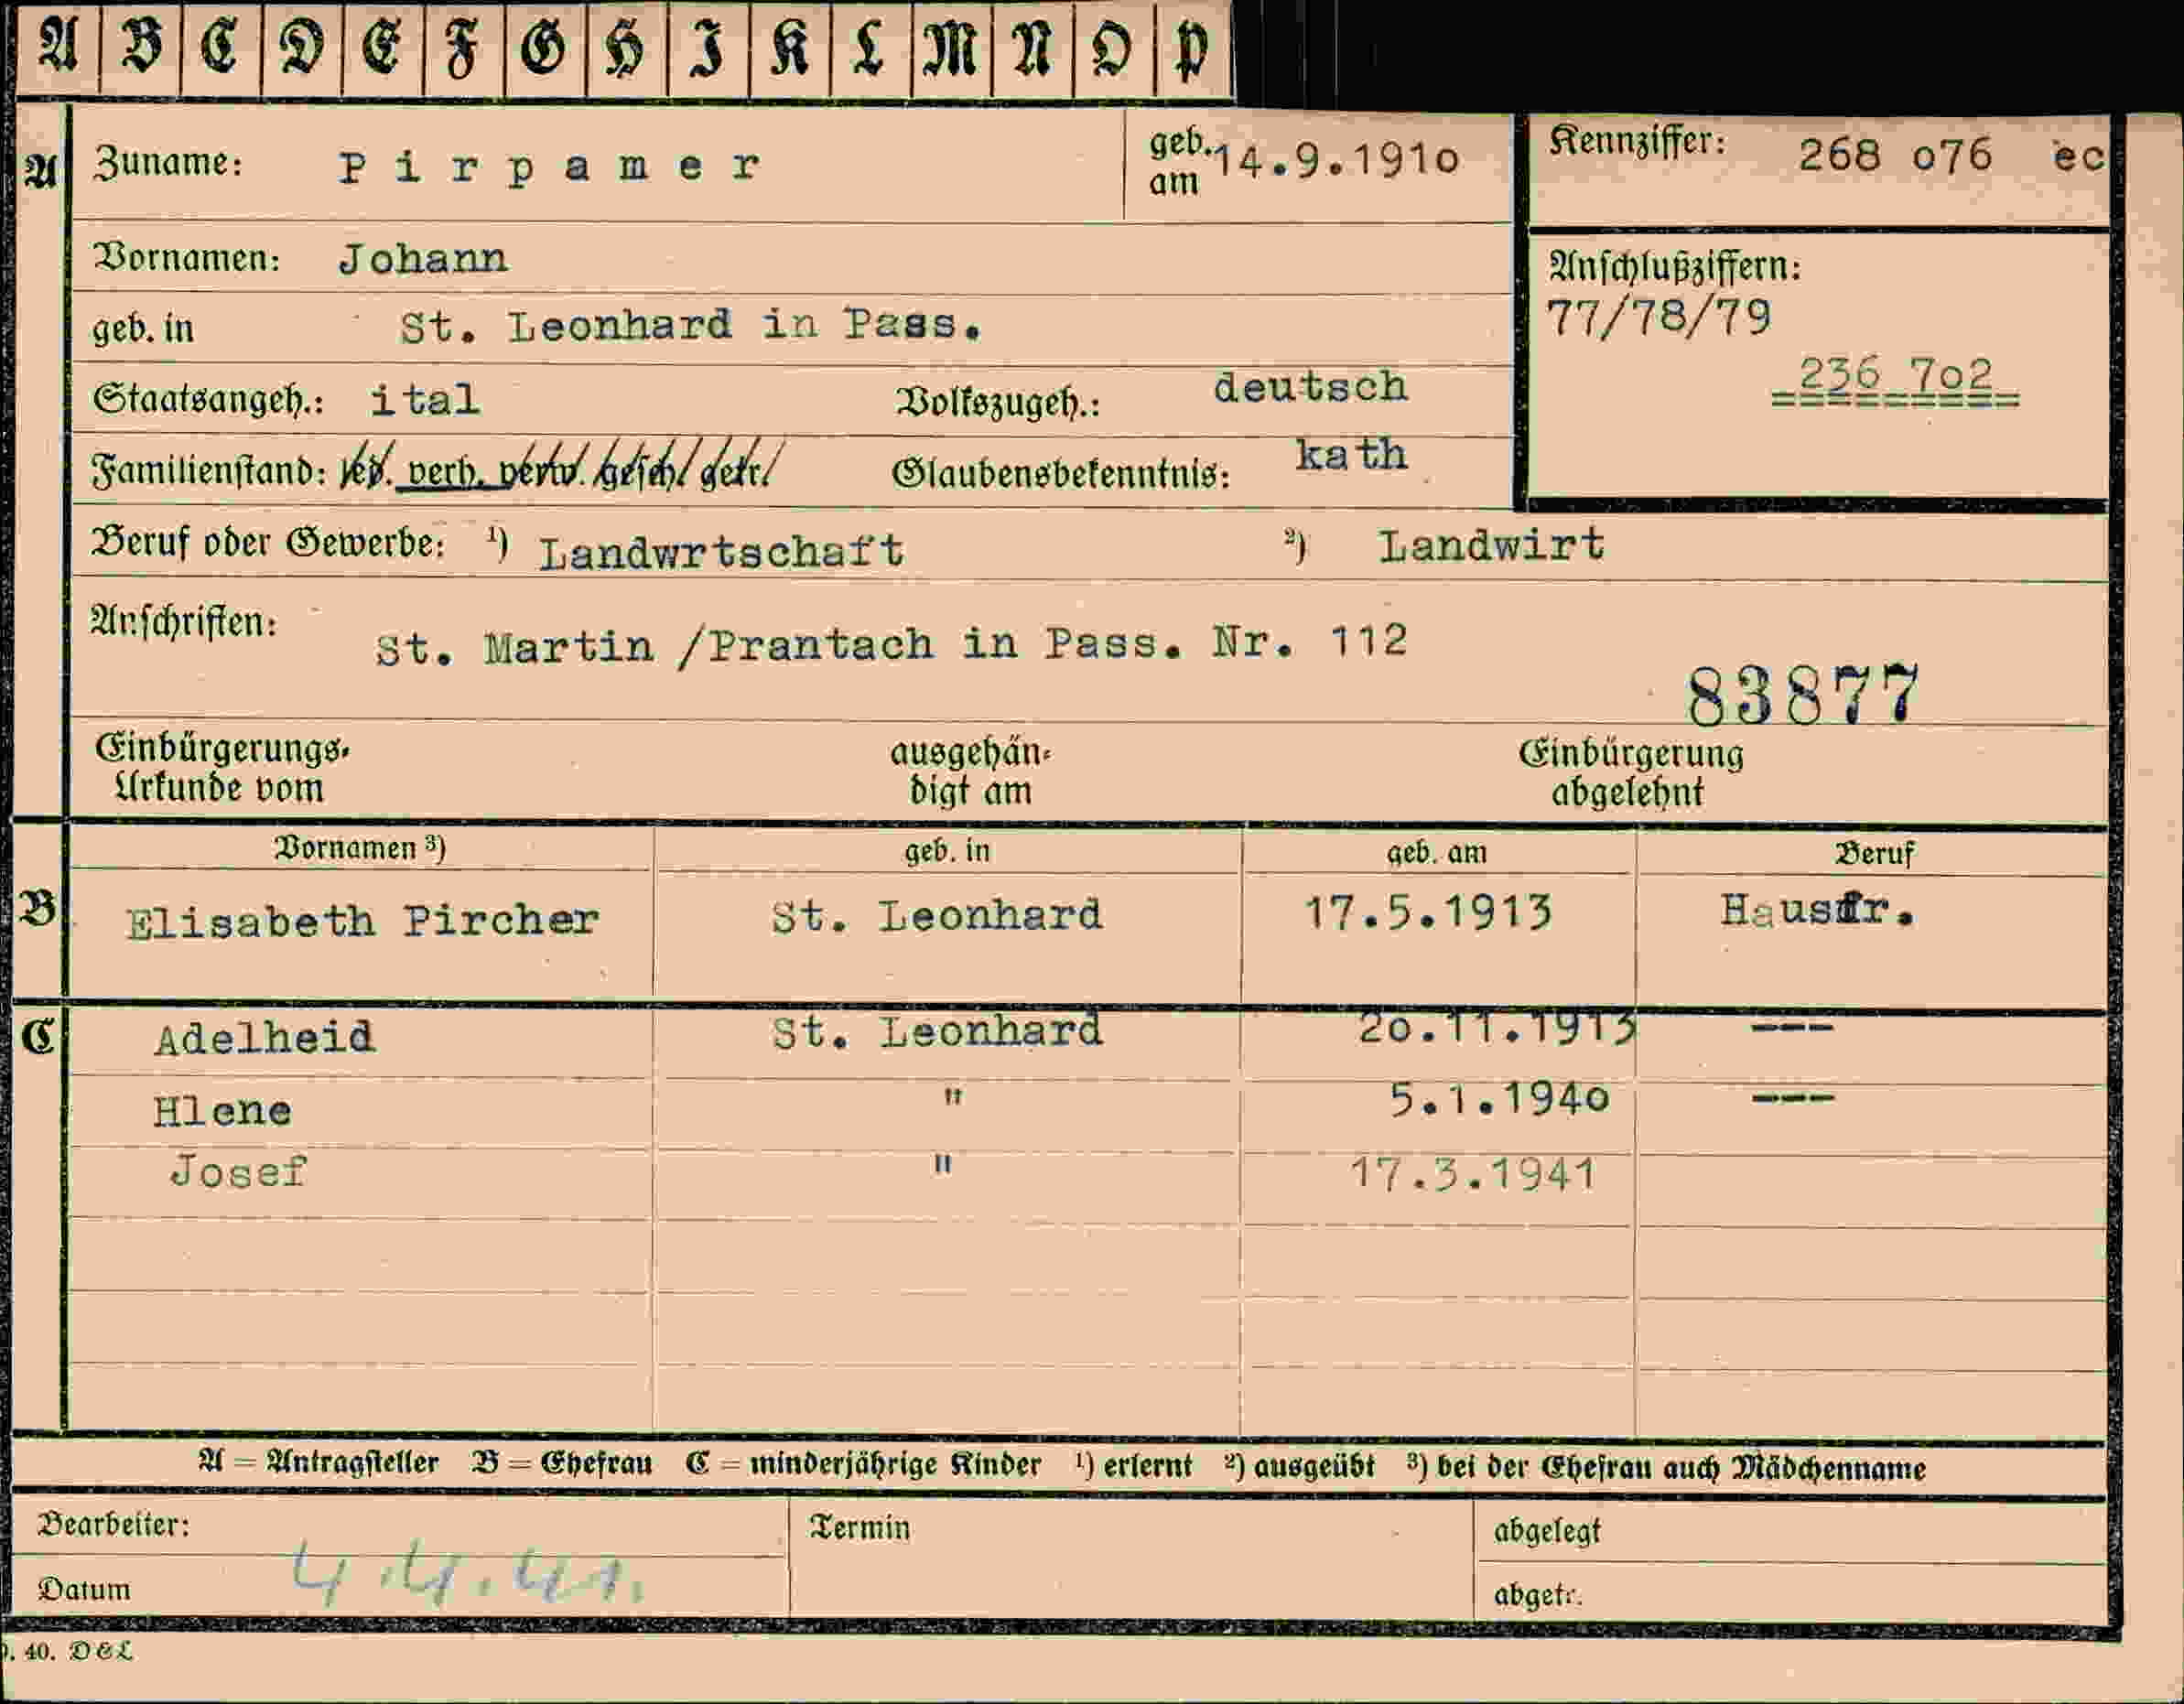 A B C D E F G H I K L M N O P
A Zuname: Pirpamer geb. am 14.9.191o Kennziffer: 268 o76 ec
Vornamen: Johann
Anschlußziffern:
geb. in St. Leonhard in Pass. 77/78/79
Staatsangeh.: ital Volkszugeh.: deutsch 236 7o2
Familienstand: led. verh. verw. gesch. getr. Glaubensbekenntnis: kath
Beruf oder Gewerbe: ¹) Landwrtschaft ²) Landwirt
Anschriften: St. Martin /Prantach in Pass. Nr. 112
83877
Einbürgerungs- ausgehän- Einbürgerung
Urkunde vom digt am abgelehnt
Vornamen ³) geb. in geb. am Beruf
B Elisabeth Pircher St. Leonhard 17.5.1913 Hausfr.
C Adelheid St. Leonhard 2o.11.1913 ---
Hlene " 5.1.194o ---
Josef " 17.3.1941
A = Antragsteller B = Ehefrau C = minderjährige Kinder ¹) erlernt ²) ausgeübt ³) bei der Ehefrau auch Mädchenname
Bearbeiter: Termin abgelegt
Datum 4.4.41. abgetr.
. 40. D&L